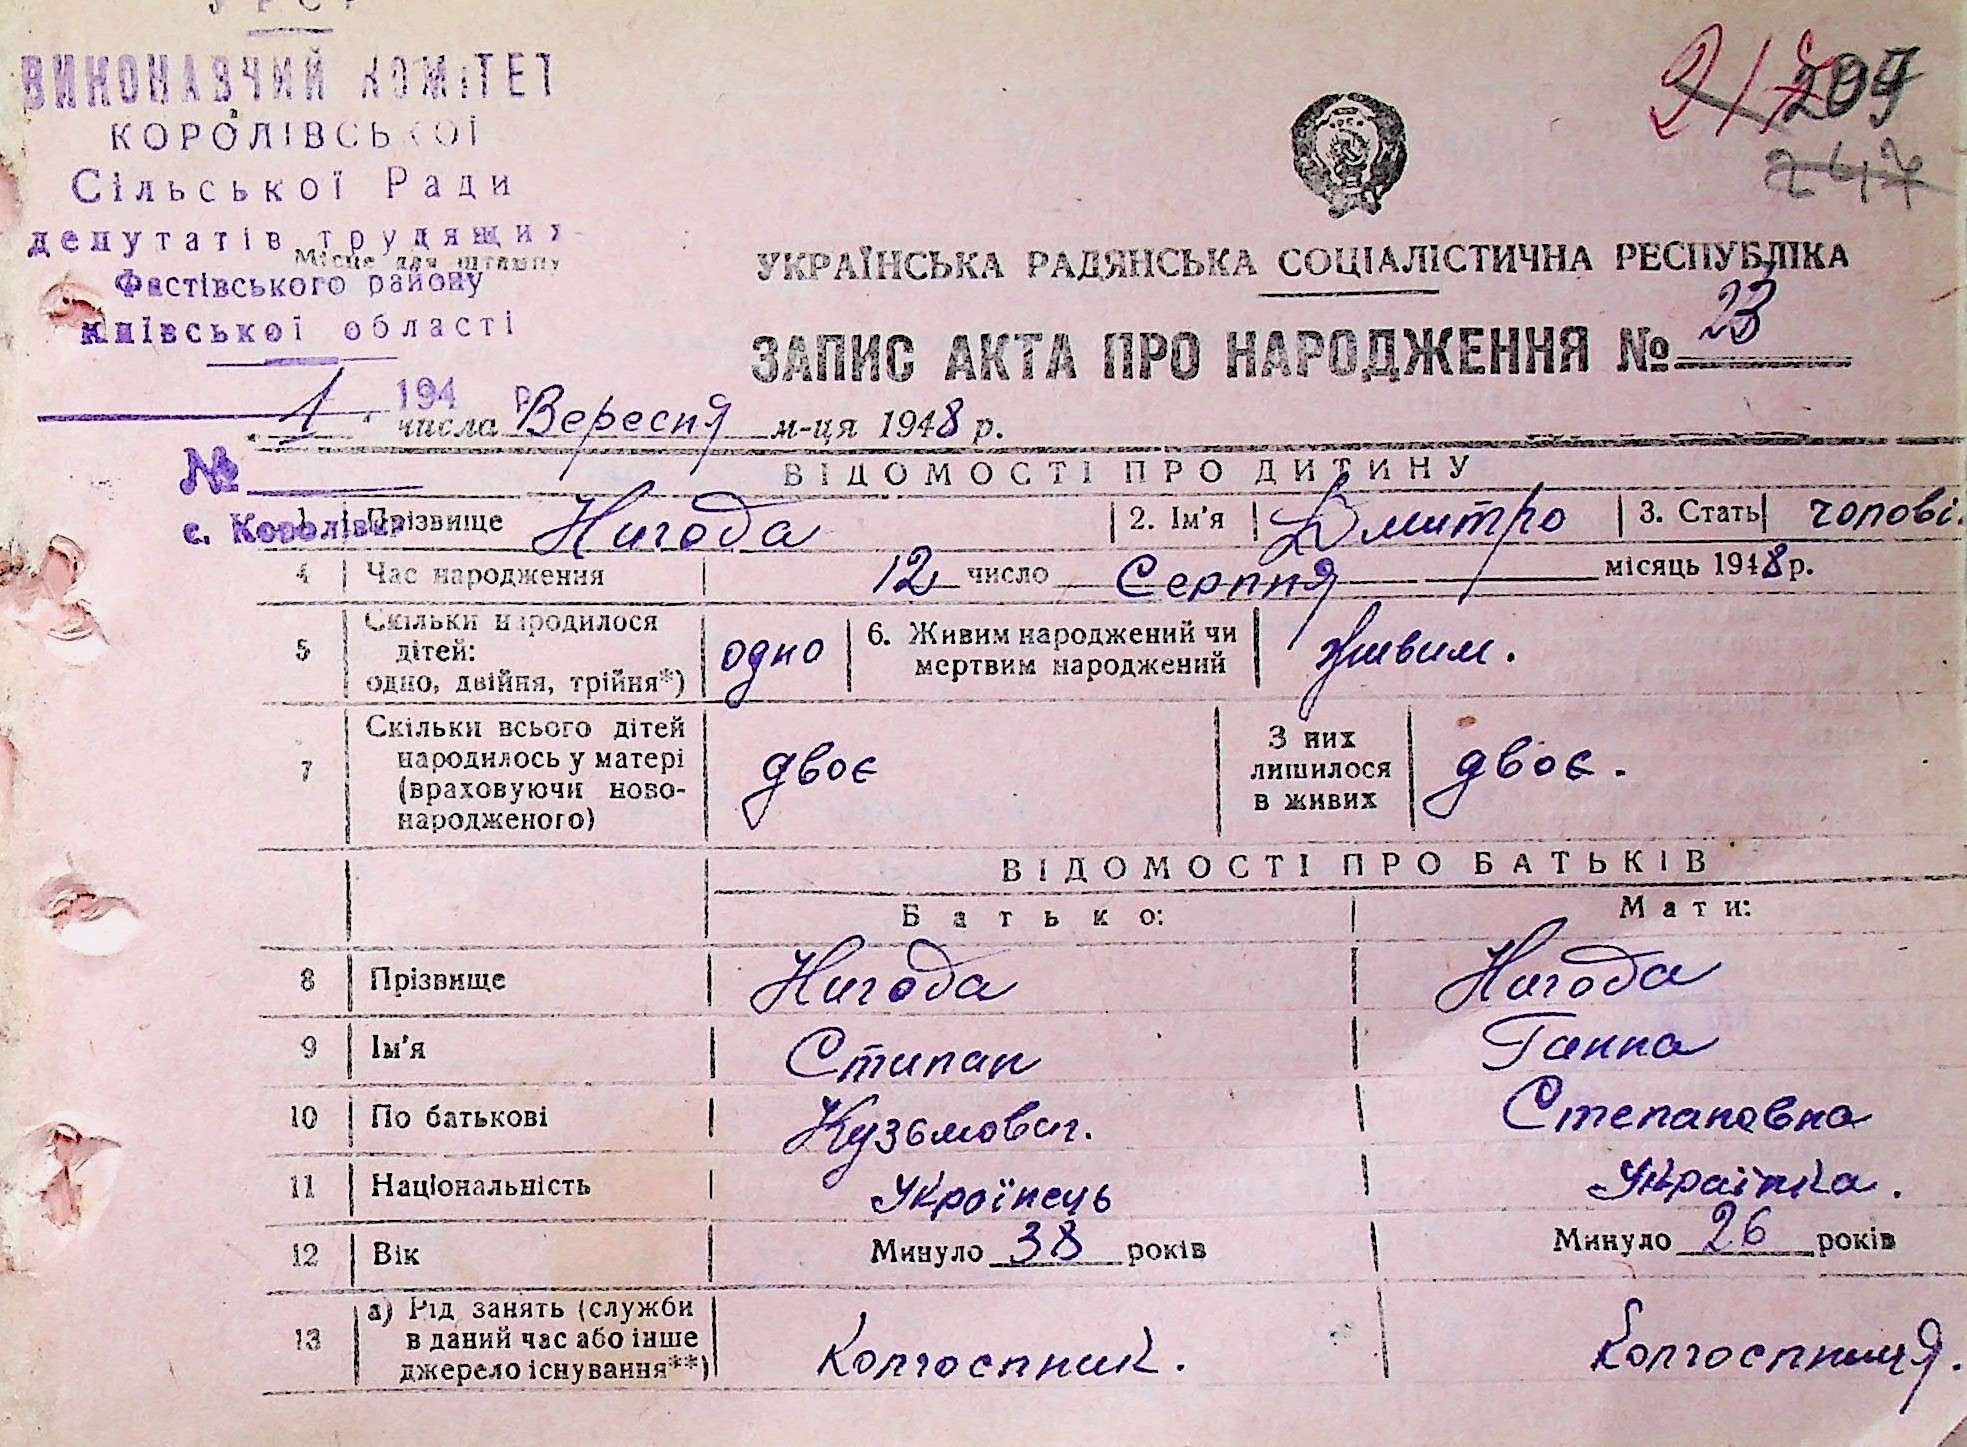 УРСР
ВИКОНАВЧИЙ КОМІТЕТ
КОРОЛІВСЬКОЇ
Сільської Ради
депутатів трудящих
Місце для штампу
Фастівського району
київської області
194 р.
№
с. Королівка
217 247
УКРАЇНСЬКА РАДЯНСЬКА СОЦІАЛІСТИЧНА РЕСПУБЛІКА
ЗАПИС АКТА ПРО НАРОДЖЕННЯ № 23
"1" числа Вересня м-ця 1948 р.
ВІДОМОСТІ ПРО ДИТИНУ
1 Прізвище Нигода 2. Ім'я Дмитро 3. Стать чолові.
4 Час народження 12 число Серпня місяць 1948 р.
5 Скільки народилося дітей: одно, двійня, трійня*) одно 6. Живим народжений чи мертвим народжений живим.
7 Скільки всього дітей народилось у матері (враховуючи ново-народженого) двоє З них лишилося в живих двоє.
ВІДОМОСТІ ПРО БАТЬКІВ
Батько: Мати:
8 Прізвище Нигода Нигода
9 Ім'я Стипан Ганна
10 По батькові Кузьмович. Степановна
11 Національність Українець Українка.
12 Вік Минуло 38 років Минуло 26 років
13 а) Рід занять (служби в даний час або інше джерело існування**) Колгоспник. Колгоспниця.